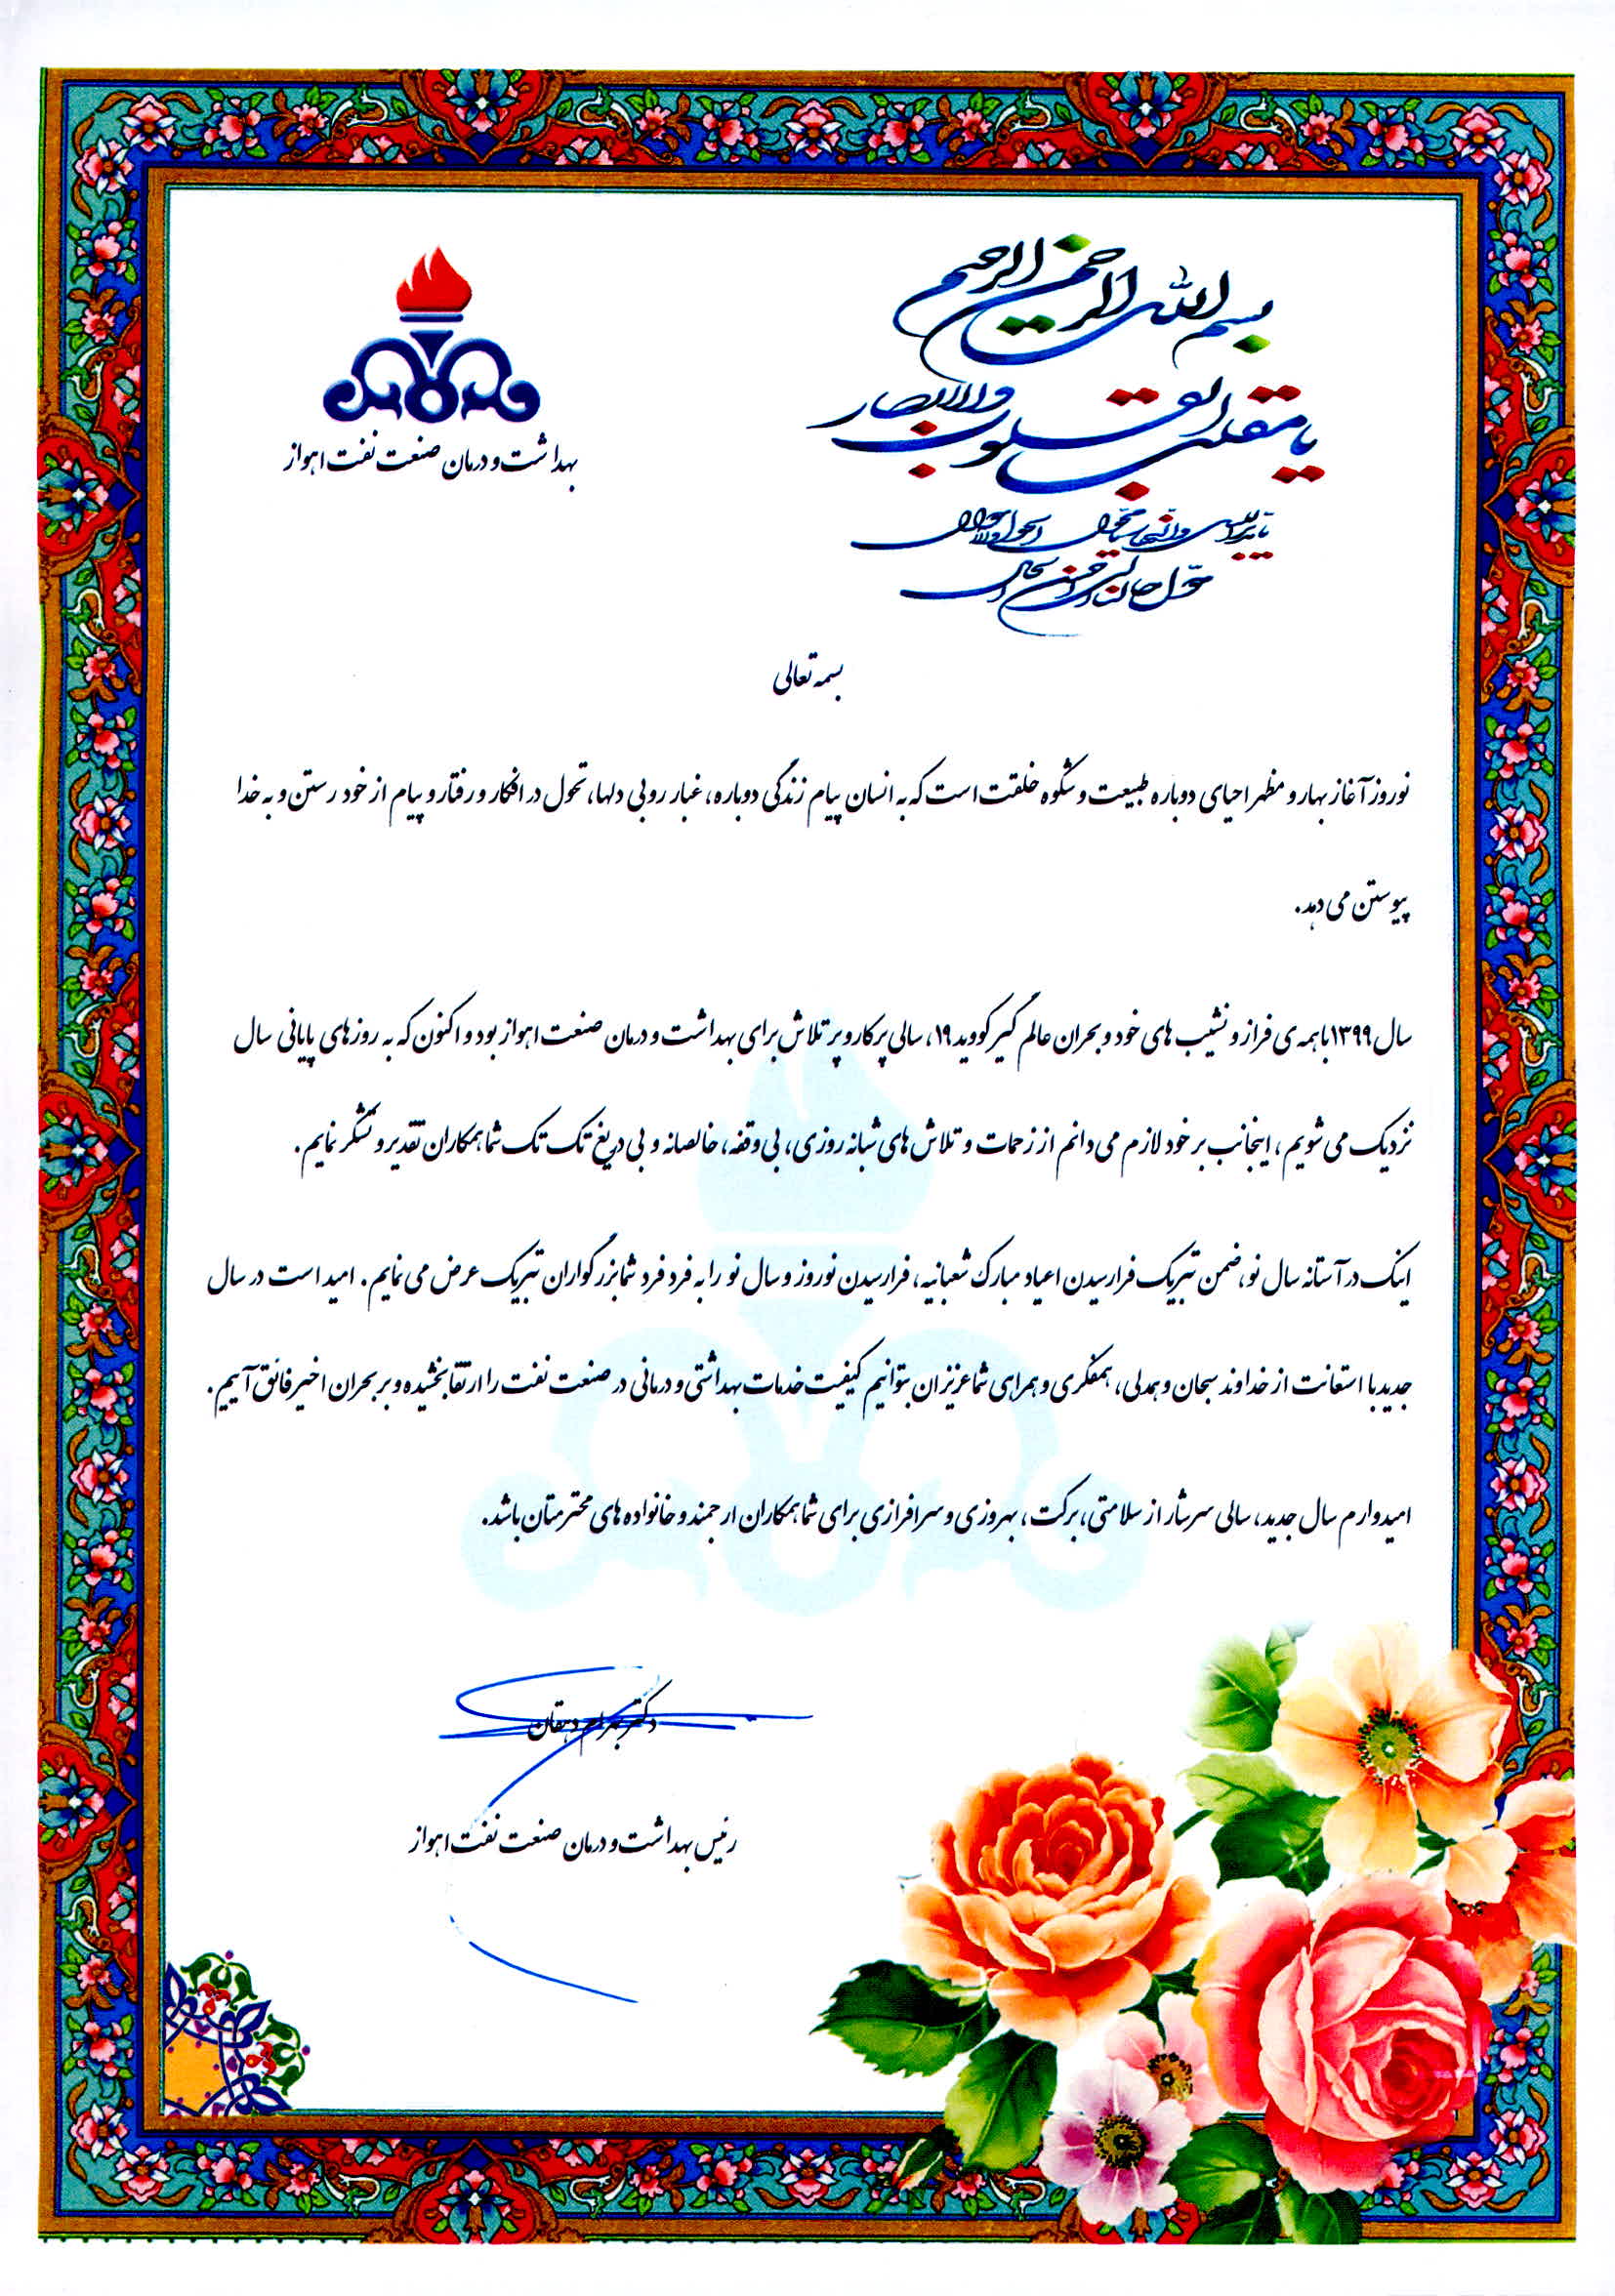 بسم الله الرحمن الرحیم
یا مقلب القلوب والابصار
یا مدبر اللیل والنهار یا محول الحول والاحوال
حول حالنا الی احسن الحال
بهداشت و درمان صنعت نفت اهواز
بسمه تعالی
نوروز آغاز بهار و مظهر احیای دوباره طبیعت و شکوه خلقت است که به انسان پیام زندگی دوباره، غبار روبی دلها، تحول در افکار و رفتار و پیام از خود رستن و به خدا
پیوستن می دهد.
سال ۱۳۹۹ با همه ی فراز و نشیب های خود و بحران عالم گیر کووید ۱۹، سالی پرکار و پر تلاش برای بهداشت و درمان صنعت اهواز بود و اکنون که به روزهای پایانی سال
نزدیک می شویم، اینجانب بر خود لازم می دانم از زحمات و تلاش های شبانه روزی، بی وقفه، خالصانه و بی دریغ تک تک شما همکاران تقدیر و تشکر نمایم.
اینک در آستانه سال نو، ضمن تبریک فرارسیدن اعیاد مبارک شعبانیه، فرارسیدن نوروز و سال نو را به فرد فرد شما بزرگواران تبریک عرض می نمایم. امید است در سال
جدید با استعانت از خداوند سبحان و همدلی، همفکری و همراهی شما عزیزان بتوانیم کیفیت خدمات بهداشتی و درمانی در صنعت نفت را ارتقا بخشیده و بر بحران اخیر فائق آییم.
امیدوارم سال جدید، سالی سرشار از سلامتی، برکت، بهروزی و سرافرازی برای شما همکاران ارجمند و خانواده های محترمتان باشد.
دکتر بهرام دهقان
رئیس بهداشت و درمان صنعت نفت اهواز